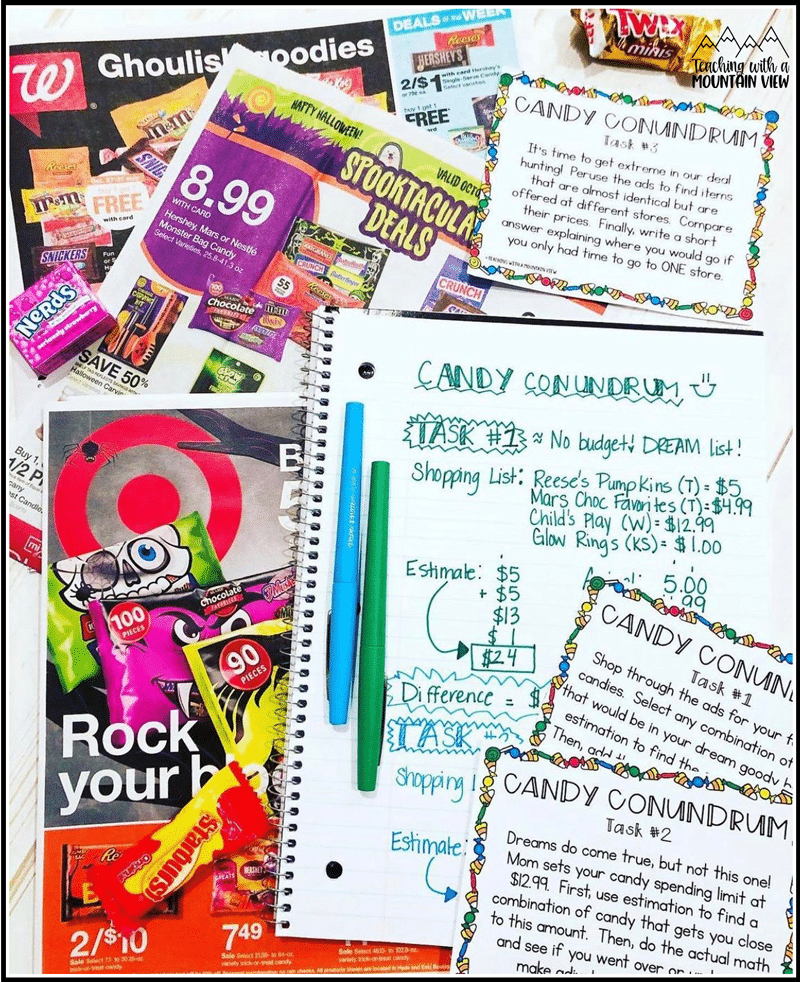 Ghoulish goodies
DEALS of the WEEK
Reese's
HERSHEY'S
2/$1
with card
Buy 1 get 1
FREE
with card
m&m's
SNICKERS
TWIX
minis
Teaching with a
MOUNTAIN VIEW
HAPPY HALLOWEEN!
SPOOKTACULA
DEALS
VALID OCTO
8.99
WITH CARD
Hershey, Mars or Nestlé
Monster Bag Candy
Select Varieties, 25.8-41.3 oz.
CRUNCH
$5
100
Chocolate
CRUNCH
Nerds
seriously strawberry
SAVE 50%
Halloween Carvin
Buy 1,
1/2 P
CANDY CONUNDRUM
Task #3
It's time to get extreme in our deal
hunting! Peruse the ads to find items
that are almost identical but are
offered at different stores. Compare
their prices. Finally, write a short
answer explaining where you would go if
you only had time to go to ONE store.
©TEACHING WITH A MOUNTAIN VIEW
CANDY CONUNDRUM
TASK #1 ≈ No budget! DREAM list!
Shopping List: Reese's Pumpkins (T) = $5
Mars Choc Favorites (T) = $4.99
Child's Play (W) = $12.99
Glow Rings (KS) = $1.00
Estimate: $5
+ $5
$13
$ 1
$24
5.00
.99
Difference = $
TASK
Shopping
Estimate:
CANDY CONUN
Task #1
Shop through the ads for your f
candies. Select any combination of
that would be in your dream goody b
estimation to find the
Then, add
CANDY CONUNDRUM
Task #2
Dreams do come true, but not this one!
Mom sets your candy spending limit at
$12.99. First, use estimation to find a
combination of candy that gets you close
to this amount. Then, do the actual math
and see if you went over or
make
B
5
100
PIECES
Chocolate
FAVORITES
90
PIECES
Rock
your b
Starburst
2/$10
749
Sale
variety trick-or-treat candy.